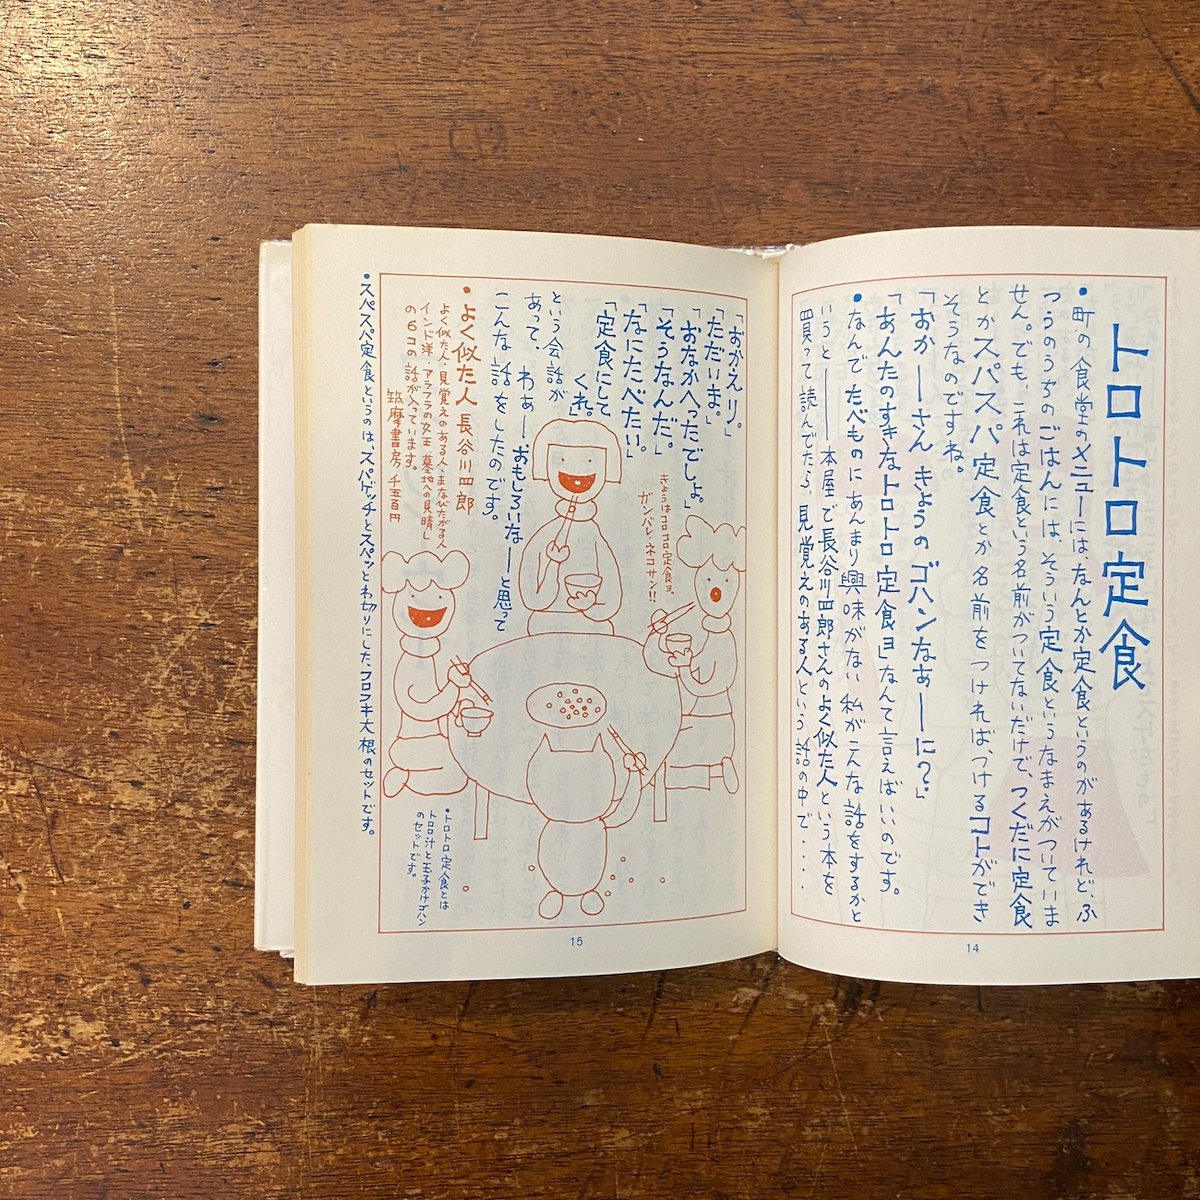 トロトロ定食
・町の食堂のメニューには、なんとか定食というのがあるけれど、ふ
つうのうちのごはんには、そういう定食というなまえがついていま
せん。でも、これは定食という名前がついてないだけで、つくだに定食
とかスパスパ定食とか名前をつければ、つけるコトができ
そうなのですね。
「おかーさん きょうのゴハンなぁーに?」
「あんたのすきなトロトロ定食ョ」なんて言えばいいのです。
・なんでたべものにあんまり興味がない私がこんな話をするかと
いうと── 本屋で長谷川四郎さんのよく似た人という本を
買って読んでたら、見覚えのある人という話の中で‥‥
14
「おかえり。」
「ただいま。」
「おなかへったでしょ。」
「そうなんだ。」
「なにたべたい。」
「定食にして
くれ。」
という会話が
あって、わぁーおもしろいなーと思って
こんな話をしたのです。
きょうはコロコロ定食ョ。
ガンバレ・ネコサン!!
・よく似た人 長谷川四郎
よく似た人・見覚えのある人・まなびたがる人
インド洋・アラフラの女王 墓地への見晴し
の6コの話が入っています。
筑摩書房 千五百円
・トロトロ定食とは
トロロ汁と玉子かけゴハン
のセットです。
・スペスペ定食というのは、スパゲッチとスペッとわ切りにした、フロフキ大根のセットです。
15